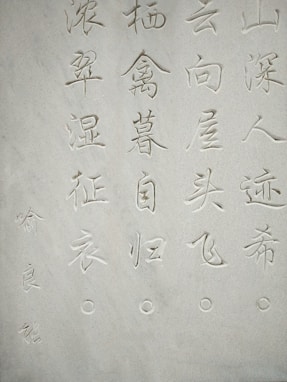 山深人迹希。
云向屋头飞。
栖禽暮自归。
浓翠湿征衣。
喻良